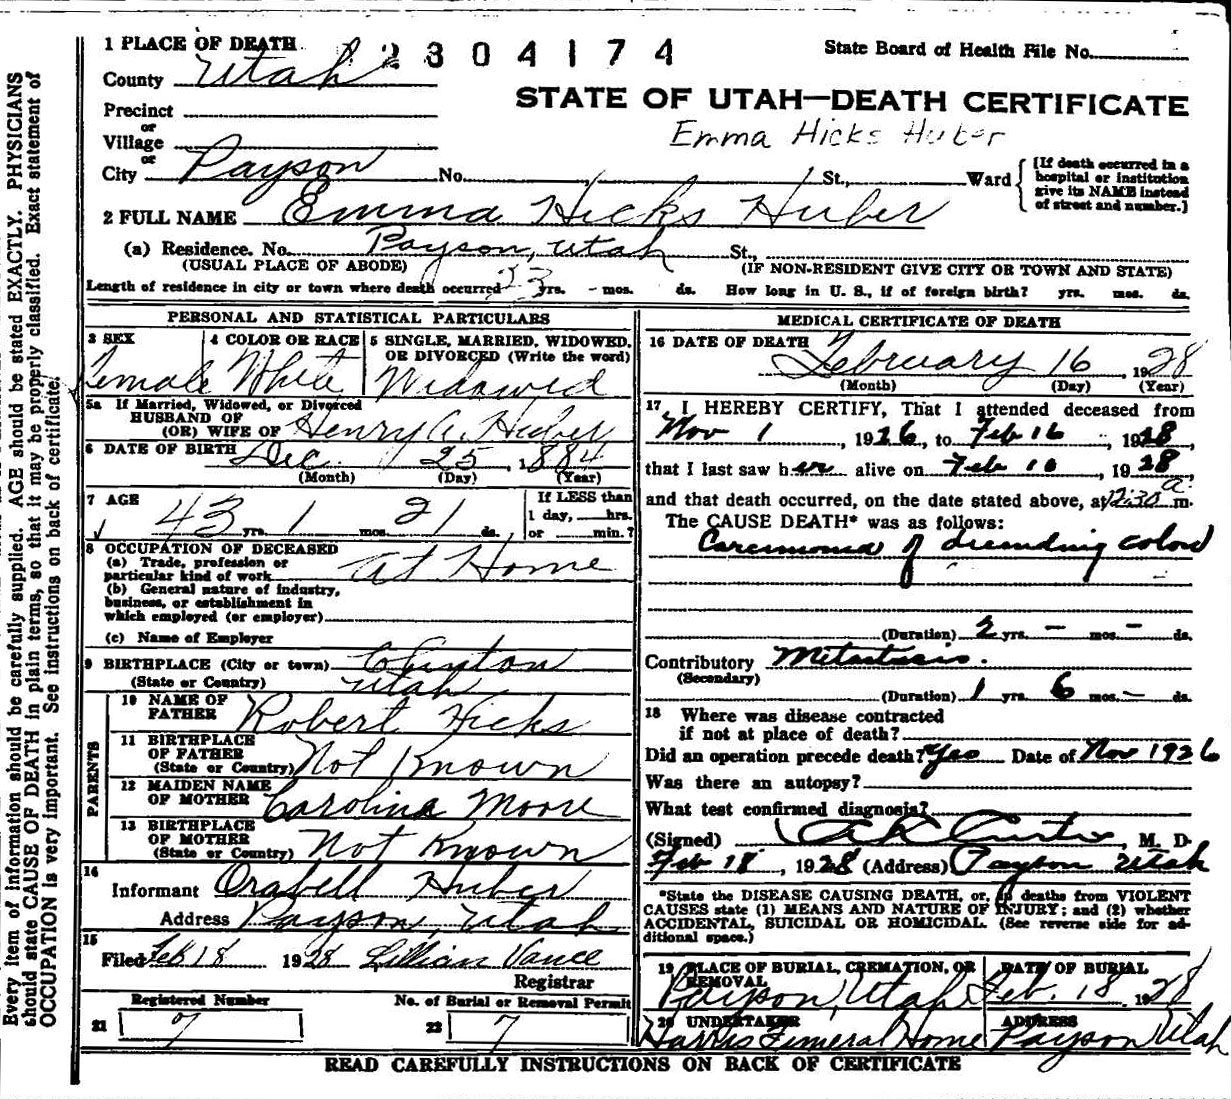 1 PLACE OF DEATH 2304174 State Board of Health File No.
County Utah
STATE OF UTAH—DEATH CERTIFICATE
Precinct
or
Emma Hicks Huber
Village
or
City Payson No. St., Ward {[If death occurred in a hospital or institution give its NAME instead of street and number.]
2 FULL NAME Emma Hicks Huber
(a) Residence. No. Payson, Utah St.,
(USUAL PLACE OF ABODE) (IF NON-RESIDENT GIVE CITY OR TOWN AND STATE)
Length of residence in city or town where death occurred 23 yrs. - mos. ds. How long in U. S., if of foreign birth? yrs. mos. ds.
PERSONAL AND STATISTICAL PARTICULARS
3 SEX
Female
4 COLOR OR RACE
White
5 SINGLE, MARRIED, WIDOWED,
OR DIVORCED (Write the word)
Widowed
5a If Married, Widowed, or Divorced
HUSBAND OF
(OR) WIFE OF Henry A. Huber
6 DATE OF BIRTH Dec 25, 1884
(Month) (Day) (Year)
7 AGE
43 yrs. 1 mos. 21 ds.
If LESS than
1 day, hrs.
or min.?
8 OCCUPATION OF DECEASED
(a) Trade, profession or
particular kind of work At Home
(b) General nature of industry,
business, or establishment in
which employed (or employer)
(c) Name of Employer
9 BIRTHPLACE (City or town) Clinton
(State or Country) Utah
PARENTS
10 NAME OF
FATHER Robert Hicks
11 BIRTHPLACE
OF FATHER
(State or Country) Not Known
12 MAIDEN NAME
OF MOTHER Carolina Moore
13 BIRTHPLACE
OF MOTHER
(State or Country) Not Known
14
Informant Orabell Huber
Address Payson, Utah
15
Filed Feb 18 1928 Lillian Vance
Registrar
Registered Number
21 7
No. of Burial or Removal Permit
22 7
MEDICAL CERTIFICATE OF DEATH
16 DATE OF DEATH
February 16 1928
(Month) (Day) (Year)
17 I HEREBY CERTIFY, That I attended deceased from
Nov 1, 1926, to Feb 16, 1928,
that I last saw her alive on Feb 10, 1928,
and that death occurred, on the date stated above, at 12:30 a. m.
The CAUSE DEATH* was as follows:
Carcinoma of decending colon
(Duration) 2 yrs. - mos. - ds.
Contributory Metastasis.
(Secondary)
(Duration) 1 yrs. 6 mos. - ds.
18 Where was disease contracted
if not at place of death?
Did an operation precede death? Yes Date of Nov 1926
Was there an autopsy?
What test confirmed diagnosis?
(Signed) , M. D.
Feb 18, 1928 (Address) Payson Utah
*State the DISEASE CAUSING DEATH, or, in deaths from VIOLENT
CAUSES state (1) MEANS AND NATURE OF INJURY; and (2) whether
ACCIDENTAL, SUICIDAL OR HOMICIDAL. (See reverse side for ad-
ditional space.)
19 PLACE OF BURIAL, CREMATION, OR
REMOVAL
Payson, Utah
DATE OF BURIAL
Feb. 18 1928
20 UNDERTAKER
Harris Funeral Home
ADDRESS
Payson Utah
READ CAREFULLY INSTRUCTIONS ON BACK OF CERTIFICATE
Every item of information should be carefully supplied. AGE should be stated EXACTLY. PHYSICIANS
should state CAUSE OF DEATH in plain terms, so that it may be properly classified. Exact statement of
OCCUPATION is very important. See instructions on back of certificate.